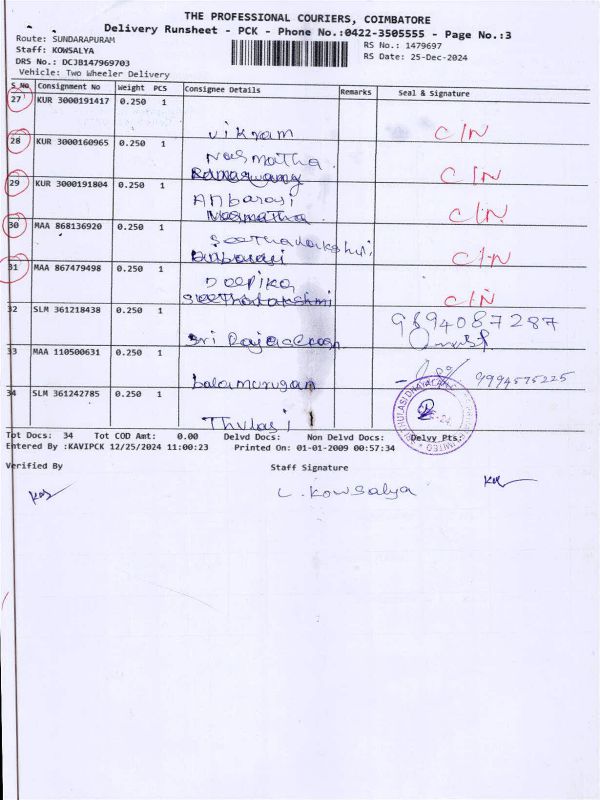 THE PROFESSIONAL COURIERS, COIMBATORE
Delivery Runsheet - PCK - Phone No.:0422-3505555 - Page No.:3
Route: SUNDARAPURAM
Staff: KOWSALYA
DRS No.: DCJB147969703
Vehicle: Two Wheeler Delivery
RS No.: 1479697
RS Date: 25-Dec-2024
S No Consignment No Weight PCS Consignee Details Remarks Seal & Signature
27 KUR 3000191417 0.250 1
Vikram C/N
28 KUR 3000160965 0.250 1
Nasmatha
Ramaswamy C/N
29 KUR 3000191804 0.250 1
Anbarasi
Nasmatha C/N
30 MAA 868136920 0.250 1
Anbarasi C/N
31 MAA 867479498 0.250 1
Deepika
Seethalakshmi C/N
32 SLM 361218438 0.250 1
9894087287
33 MAA 110500631 0.250 1
balamurugan 9994575225
34 SLM 361242785 0.250 1
Thulasi
Tot Docs: 34 Tot COD Amt: 0.00 Delvd Docs: Non Delvd Docs: Delvy Pts:
Entered By :KAVIPCK 12/25/2024 11:00:23 Printed On: 01-01-2009 00:57:34
Verified By Staff Signature
L. Kowsalya